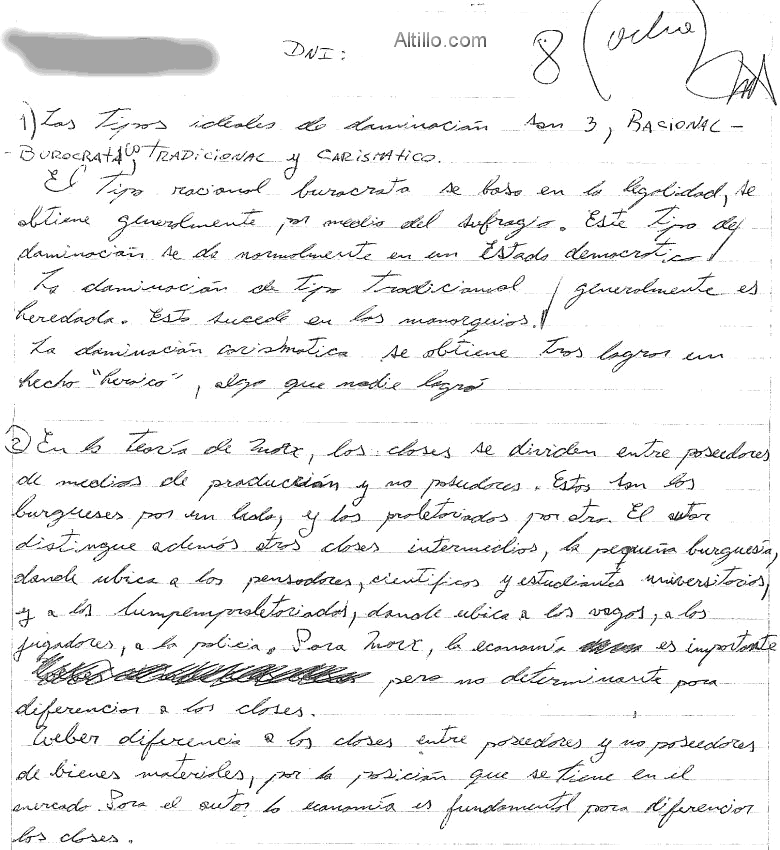 Altillo.com
DNI:
8 (ocho)
1) Los tipos ideales de dominación son 3, RACIONAL-
-BUROCRATICO, TRADICIONAL y CARISMATICO.
El tipo racional burocrata se basa en la legalidad, se
obtiene generalmente, por medio del sufragio. Este tipo de
dominación se da normalmente en un Estado democratico
La dominación de tipo tradicional generalmente es
heredada. Esto sucede en las monarquias.
La dominación carismatica se obtiene tras lograr un
hecho "heroico", algo que nadie logró
2) En la teoría de Marx, las clases se dividen entre poseedores
de medios de producción y no poseedores. Estos son los
burgueses por un lado, y los proletariados por otro. El autor
distingue además otras clases intermedias, la pequeña burguesía,
donde ubica a los pensadores, cientificos y estudiantes universitarios,
y a los lumpemproletariados, donde ubica a los vagos, a los
jugadores, a la policia. Para Marx, la economía es importante
pero no determinante para
diferenciar a las clases.
Weber diferencia a las clases entre poseedores y no poseedores
de bienes materiales, por la posición que se tiene en el
mercado. Para el autor la economía es fundamental para diferenciar
las clases.